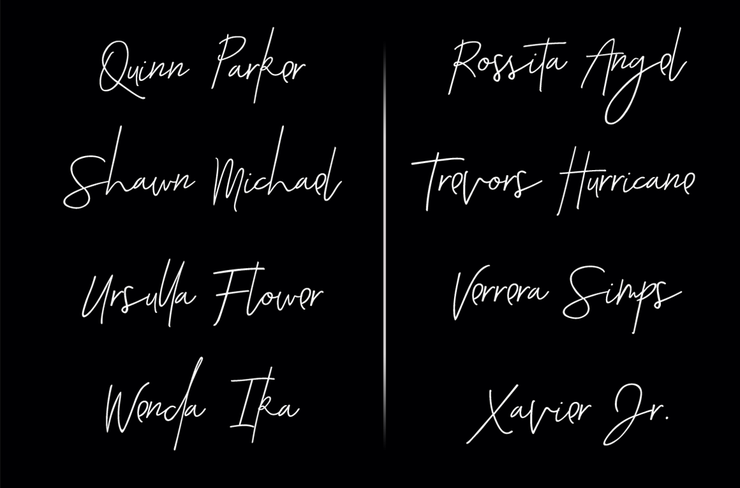 Quinn Parker
Shawn Michael
Ursulla Flower
Wenda Ika
Rossita Angel
Trevors Hurricane
Verrera Simps
Xavier Jr.